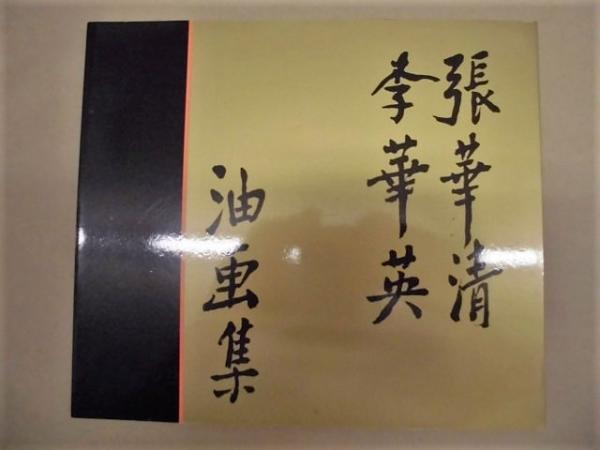 張華清
李華英
油画集